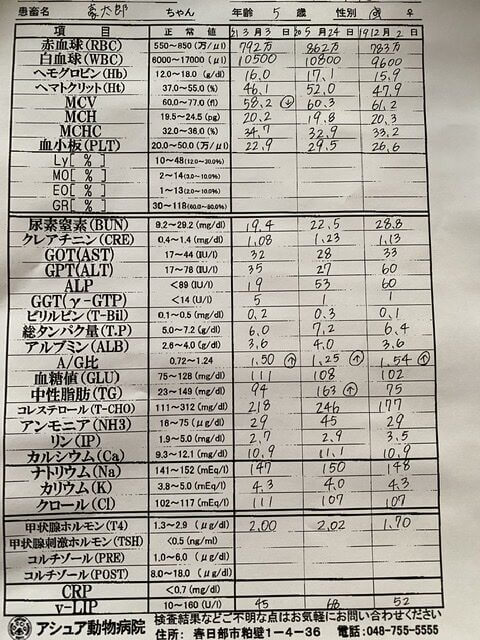 患畜名 豪太郎 ちゃん 年齢 5 歳 性別 ♂ ♀
項目 正常値 21年3月3日 20年5月24日 19年12月2日
赤血球(RBC) 550~850(万/μl) 792万 862万 783万
白血球(WBC) 6000~17000(μl) 10500 10800 9600
ヘモグロビン(Hb) 12.0~18.0(g/dl) 16.0 17.1 15.9
ヘマトクリット(Ht) 37.0~55.0(%) 46.1 52.0 47.9
MCV 60.0~77.0(fl) 58.2 ↓ 60.3 61.2
MCH 19.5~24.5(pg) 20.2 19.8 20.3
MCHC 32.0~36.0(%) 34.7 32.9 33.2
血小板(PLT) 20.0~50.0(万/μl) 22.9 29.5 26.6
Ly[ % ] 10~48(12.0~30.0%)
MO[ % ] 2~14(3.0~10.0%)
EO[ % ] 1~13(2.0~10.0%)
GR[ % ] 30~118(60.0~80.0%)
尿素窒素(BUN) 9.2~29.2(mg/dl) 19.4 22.5 28.8
クレアチニン(CRE) 0.4~1.4(mg/dl) 1.08 1.23 1.13
GOT(AST) 17~44(IU/l) 32 28 33
GPT(ALT) 17~78(IU/l) 35 27 60
ALP <89(IU/l) 19 53 60
GGT(γ-GTP) <14(U/l) 5 1 1
ビリルビン(T-Bil) 0.1~0.5(mg/dl) 0.2 0.3 0.1
総タンパク量(T.P) 5.0~7.2(g/dl) 6.0 7.2 6.4
アルブミン(ALB) 2.6~4.0(g/dl) 3.6 4.0 3.6
A/G比 0.72~1.24 1.50 ↑ 1.25 ↑ 1.54 ↑
血糖値(GLU) 75~128(mg/dl) 111 108 102
中性脂肪(TG) 23~149(mg/dl) 94 163 ↑ 75
コレステロール(T-CHO) 111~312(mg/dl) 218 246 177
アンモニア(NH3) 16~75(μg/dl) 29 45 29
リン(IP) 1.9~5.0(mg/dl) 2.7 2.9 3.5
カルシウム(Ca) 9.3~12.1(mg/dl) 10.9 11.1 10.9
ナトリウム(Na) 141~152(mEq/l) 147 150 148
カリウム(K) 3.8~5.0(mEq/l) 4.3 4.0 4.3
クロール(Cl) 102~117(mEq/l) 111 107 107
甲状腺ホルモン(T4) 1.3~2.9(μg/dl) 2.00 2.02 1.70
甲状腺刺激ホルモン(TSH) <0.5(ng/ml)
コルチゾール(PRE) 1.0~6.0(μg/dl)
コルチゾール(POST) 8.0~18.0(μg/dl)
CRP <0.7(mg/dl)
v-LIP 10~160(U/l) 45 68 52
アシュア動物病院 検査結果などご不明な点はお気軽にお問い合わせください
住所: 春日部市粕壁1-4-36 電話:048-755-5555